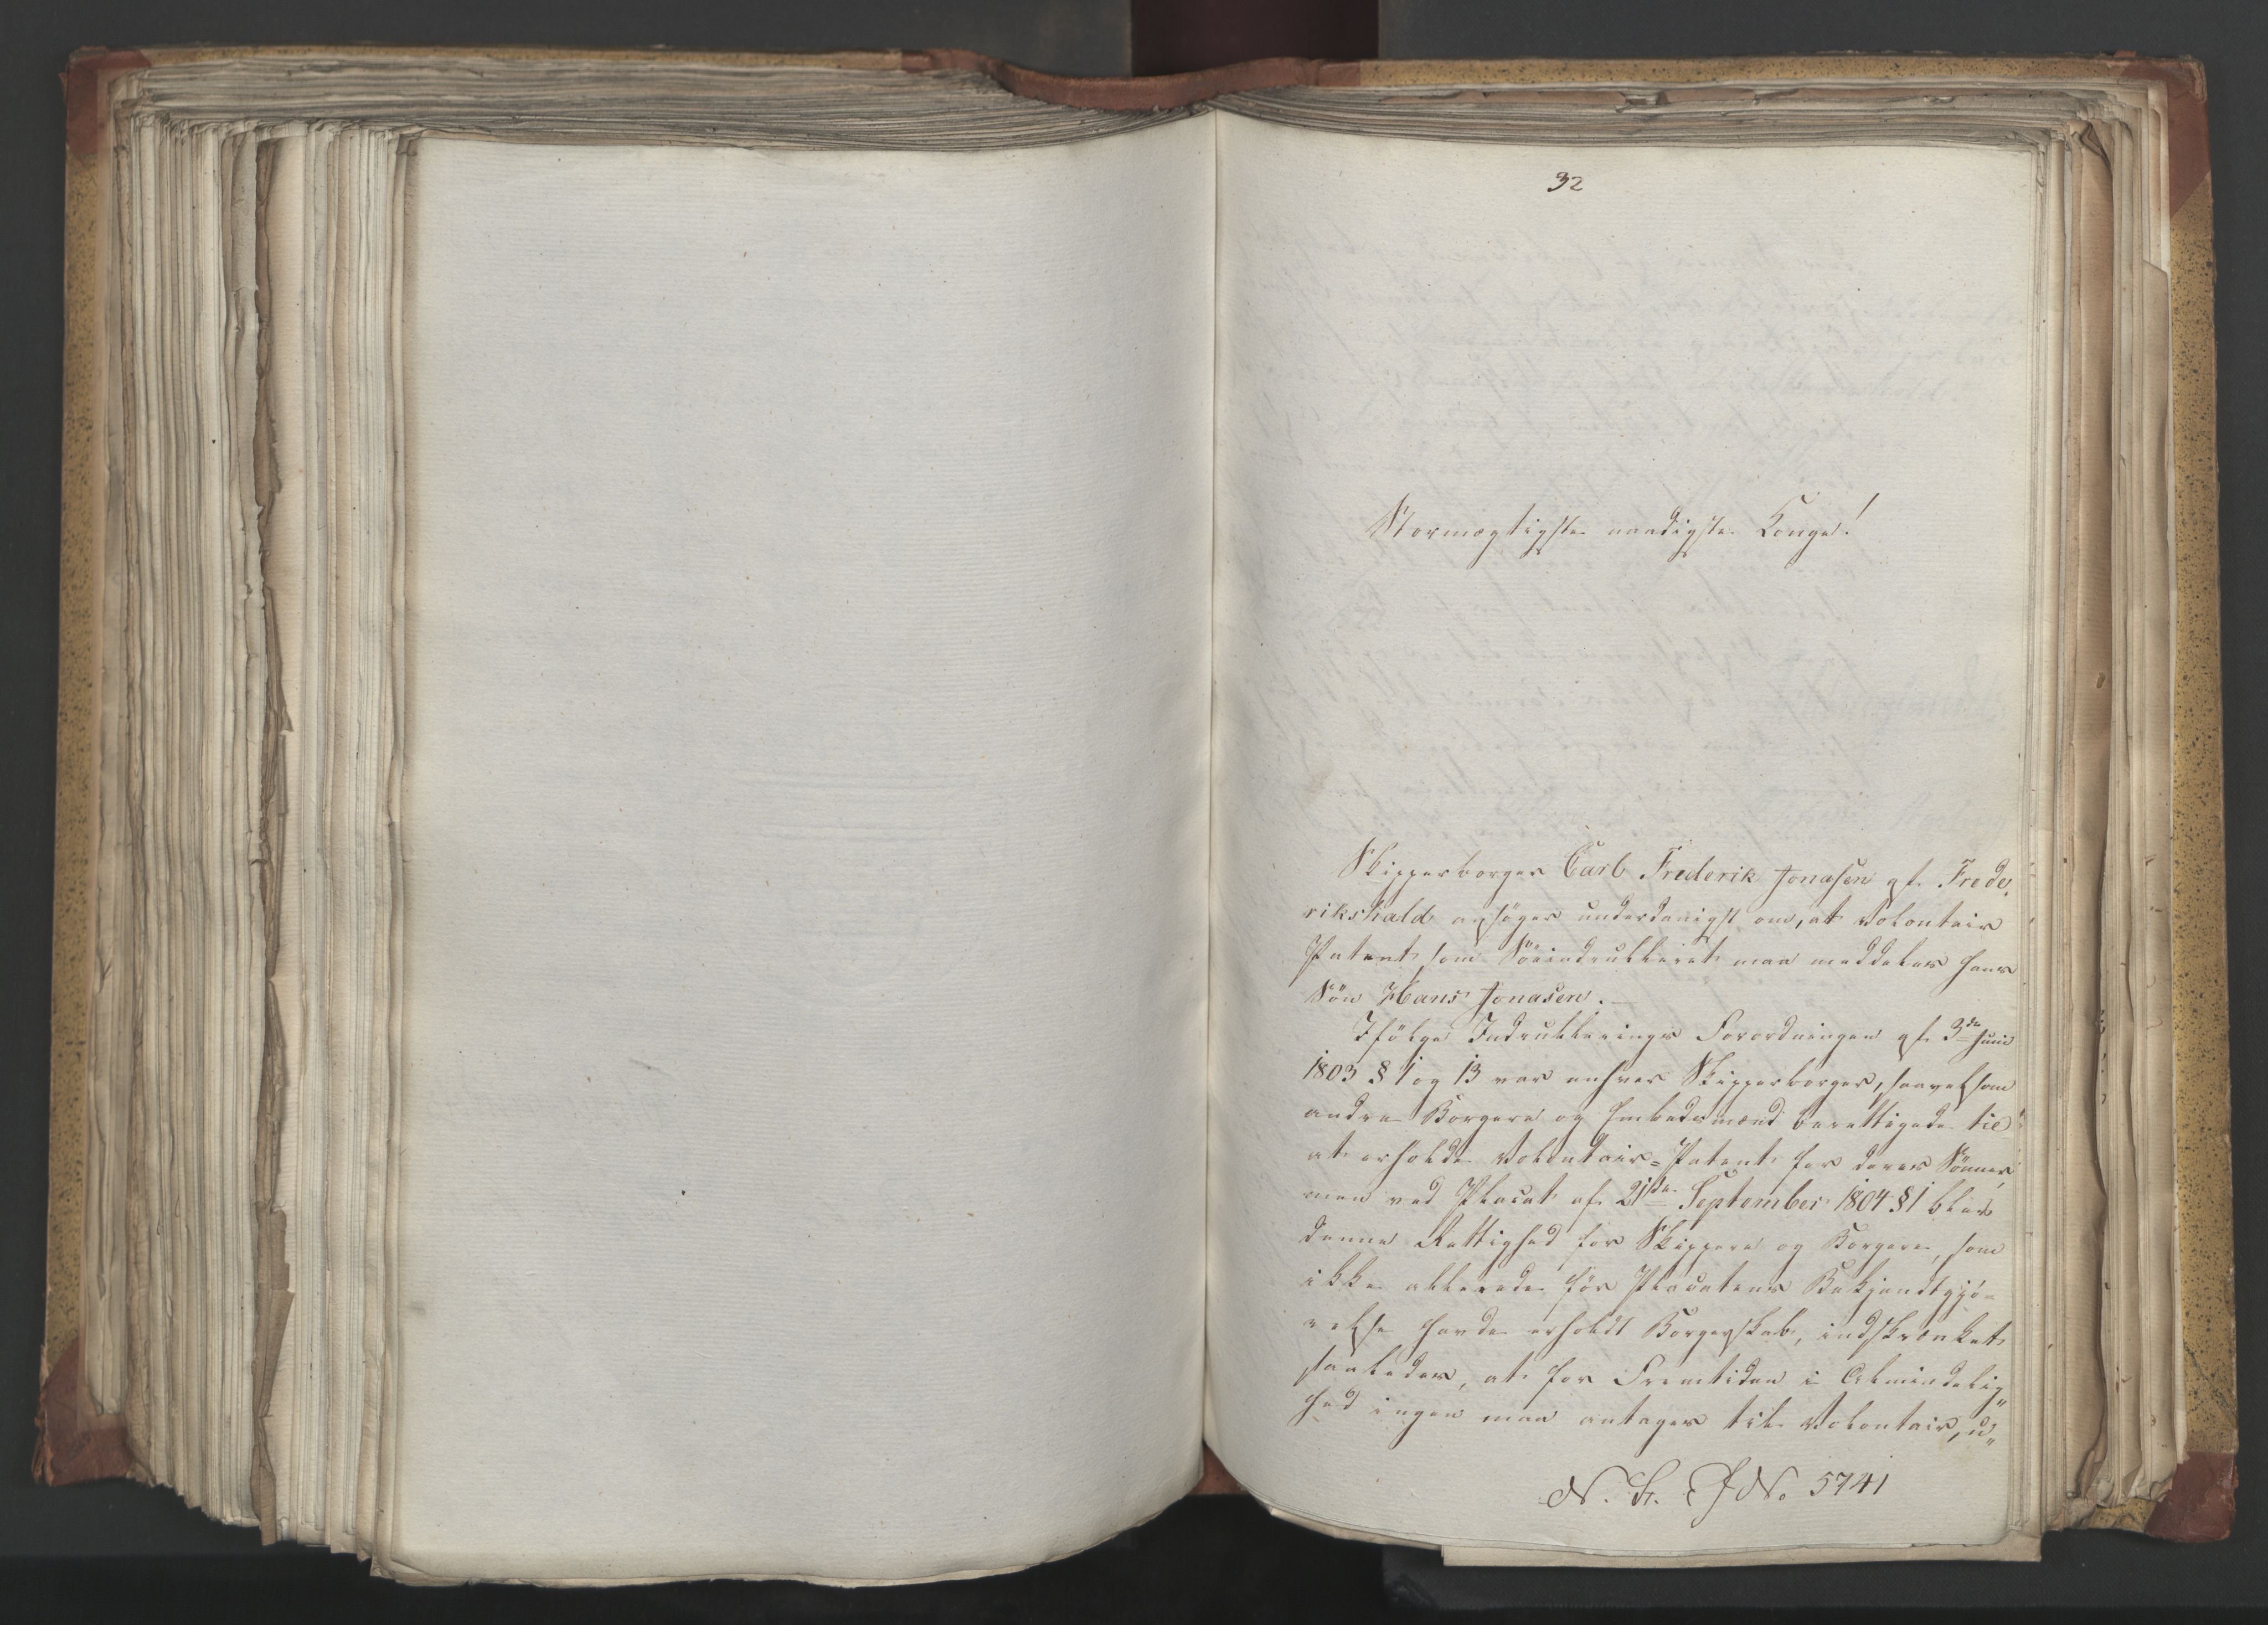 32
Stormægtigste naadigste Konge!
Skipperborger Carl Frederik Jonasen af Frede„
rikshald ansøger underdanigst om, at Volontair
Patent som Söeindrulleret maa meddeles hans
Sön Hans Jonasen. —
Ifölge Indrullerings Forordningen af 3de Junii
1803 § 1 og 13 var enhver Skipperborger, saavelsom
andre Borgere og Embedsmænd berettigede til
at erholde Volontair=Patent for deres Sönner,
men ved Placat af 21de September 1804 § 1 blev
denne Rettighed for Skippere og Borgere, som
ikke allerede för Placatens Bekjendtgjö=
relse havde erholdt Borgerskab, indskrænket
saaledes, at for Fremtiden i Almindelig„
hed ingen maa antages til Volontair, u„
JNo. 5741